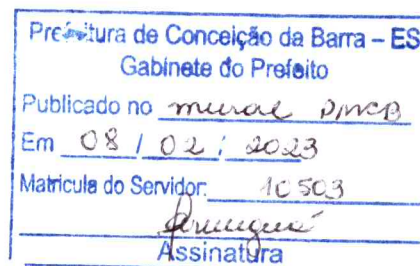 Prefeitura de Conceição da Barra – ES
Gabinete do Prefeito
Publicado no mural PMCB
Em 08 / 02 / 2023
Matricula do Servidor: 10503
Assinatura